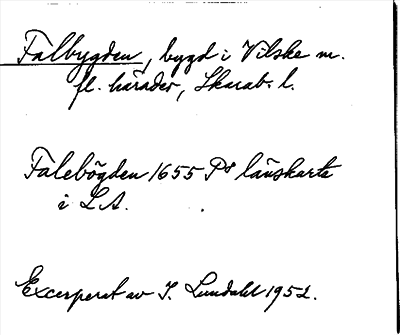 Falbygden, bygd i Vilske m.
fl. härader, Skarab. l.
Falebögden 1655 Ps länskarta
i LA.
Excerperat av I. Lundahl 1952.